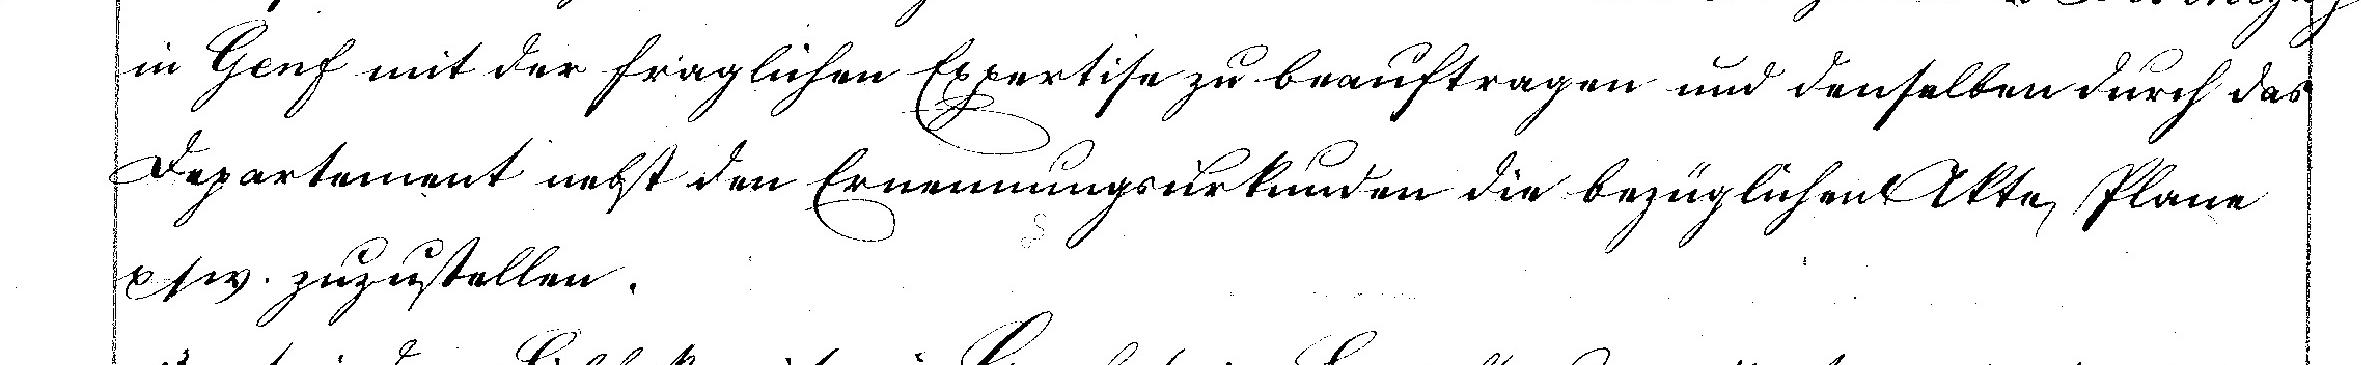 in Genf mit der fraglichen Expertise zu beauftragen und denselben durch das
Departement nebst den Ernennungsurkunden die bezüglichen Akten, Plane
zuzustellen.